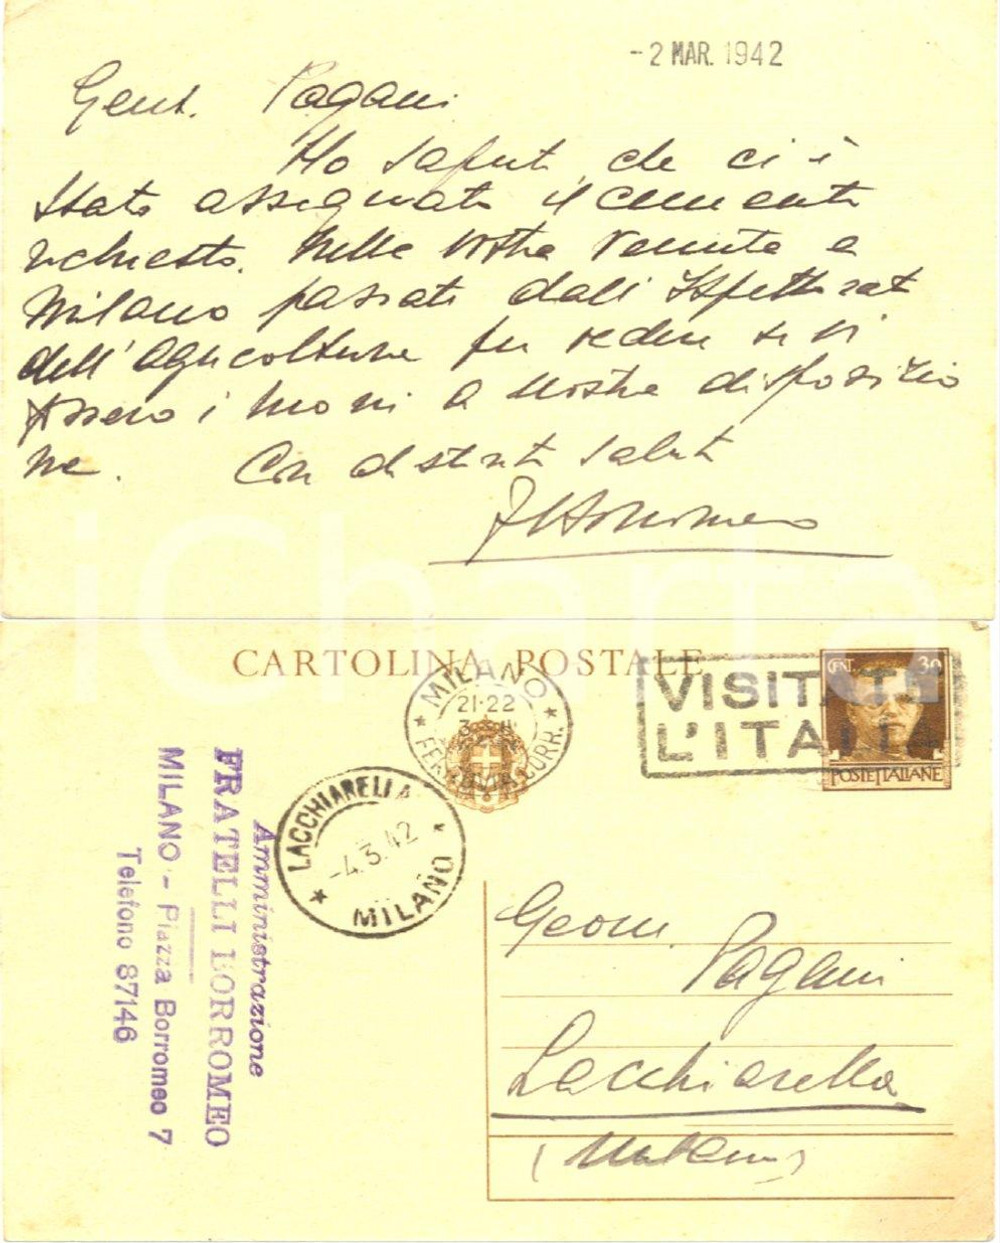 -2 MAR. 1942
Gent. Pagani
Ho saputo che ci è
stato assegnato il cemento
richiesto. Nelle vostre venute a
Milano passate dall' Ispettorato
dell'Agricoltura per vedere se vi
fossero i buoni a nostra disposizio
ne. Con distinti saluti
iCharta
CARTOLINA POSTALE
MILANO
21-22
FERROVIA CORR.
VISITATE
L'ITALIA
CENT. 30
POSTE ITALIANE
LACCHIARELLA
-4.3.42
MILANO
Amministrazione
FRATELLI BORROMEO
MILANO - Piazza Borromeo 7
Telefono 87146
Geom.
Pagani
Lacchiarella
(Milano)